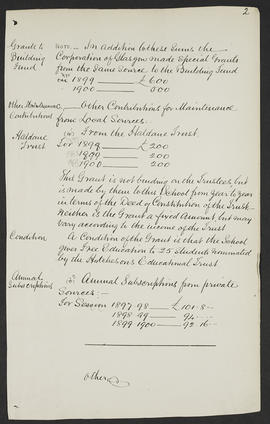 2
Grants to Building Fund
NOTE.— In Addition to these Sums the
Corporation of Glasgow made Special Grants
from the Same Source to the Building Fund
in 1899 — £600
" 1900 — 500
Other Maintenance Contributions
Other Contributions for Maintenance
from Local Sources.
Haldane Trust
(1) From the Haldane Trust.
For 1898 — £200
1899 — 200
1900 — 200
This Grant is not binding on the Trustees but
is made by them to the School from Year to Year
in terms of the Deed of Constitution of the Trust.
Neither is the Grant a fixed Amount, but may
vary according to the income of the Trust
Condition
A Condition of the Grant is that the School
gives Free Education to 25 Students nominated
by the Hutchesons Educational Trust
Annual Subscriptions
(2) Annual Subscriptions from private
Sources:—
For Session 1897-98 — £101.8.-
1898-99 — 94.-.-
1899-1900 — 92.16.-
other